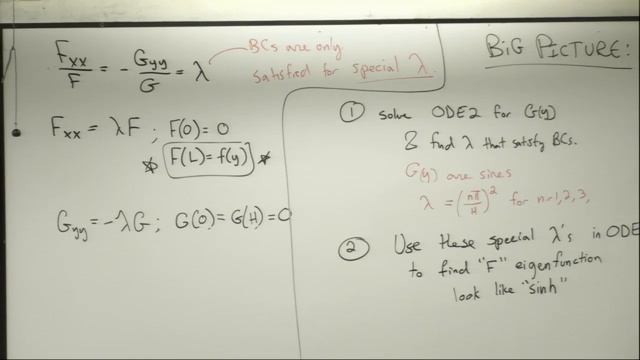 Fxx/F = -Gyy/G = λ
BCs are only
satisfied for special λ.
Fxx = λF ; F(0) = 0
* F(L) = f(y) *
Gyy = -λG ; G(0) = G(H) = 0
BIG PICTURE:
① solve ODE2 for G(y)
& find λ that satisfy BCs.
G(y) are sines
λ = (nπ/H)² for n=1,2,3,
② Use these special λ's in ODE
to find "F" eigenfunction
look like "sinh"